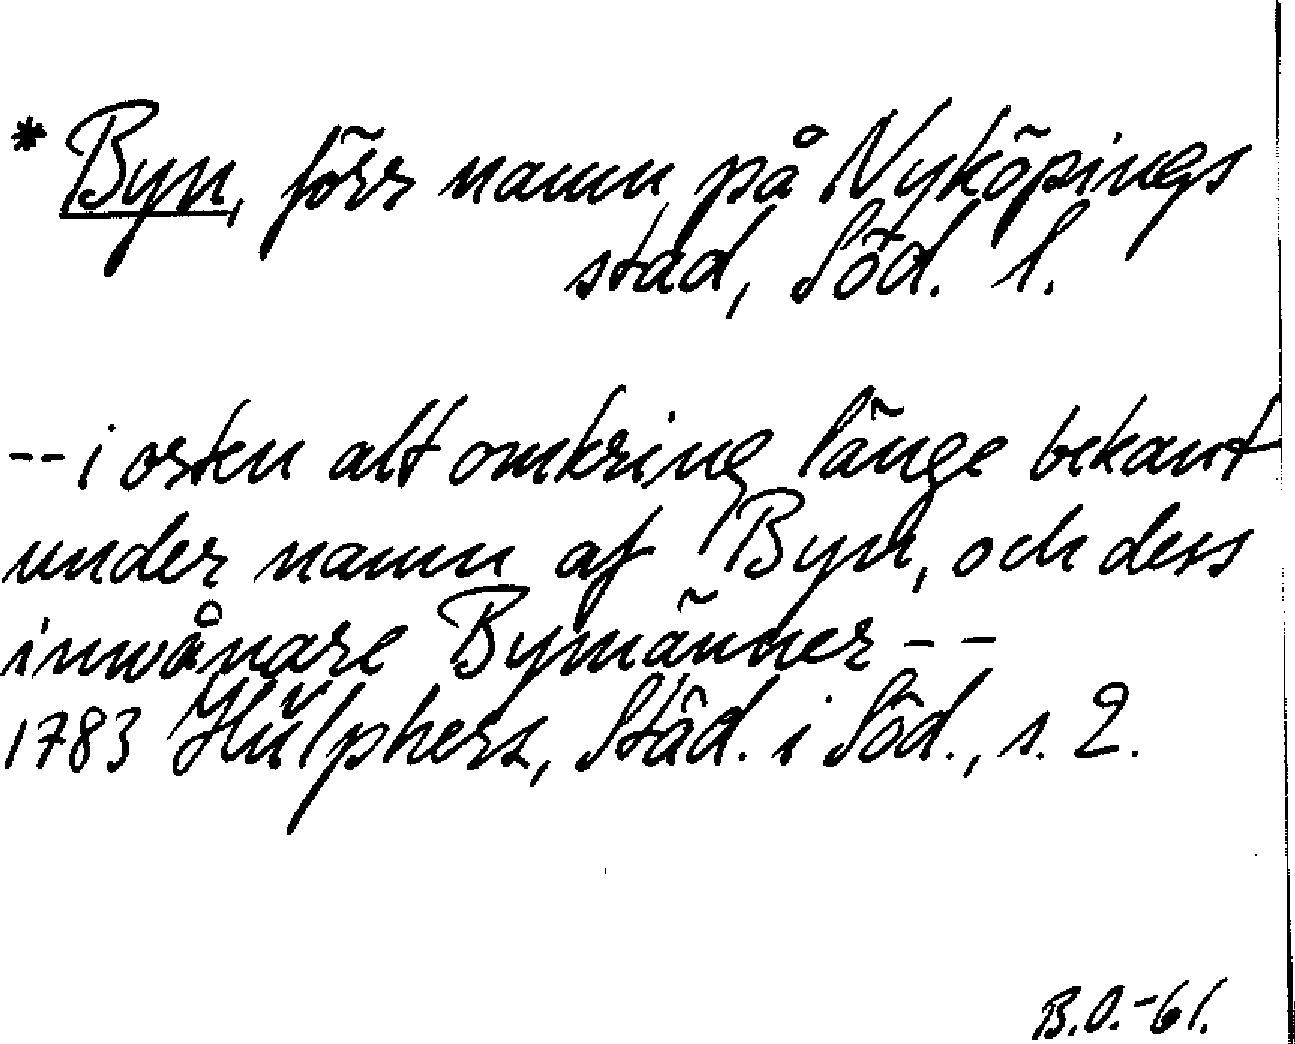 * Byn, förr namn på Nyköpings
stad, Söd. l.
-- i orten alt omkring länge bekant
under namn af Byn, och dess
inwånare Bymänner --
1783 Hülphers, Städ. i Söd., s. 2.
B.O.-61.